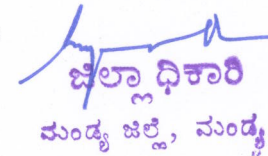 ಜಿಲ್ಲಾಧಿಕಾರಿ
ಮಂಡ್ಯ ಜಿಲ್ಲೆ, ಮಂಡ್ಯ